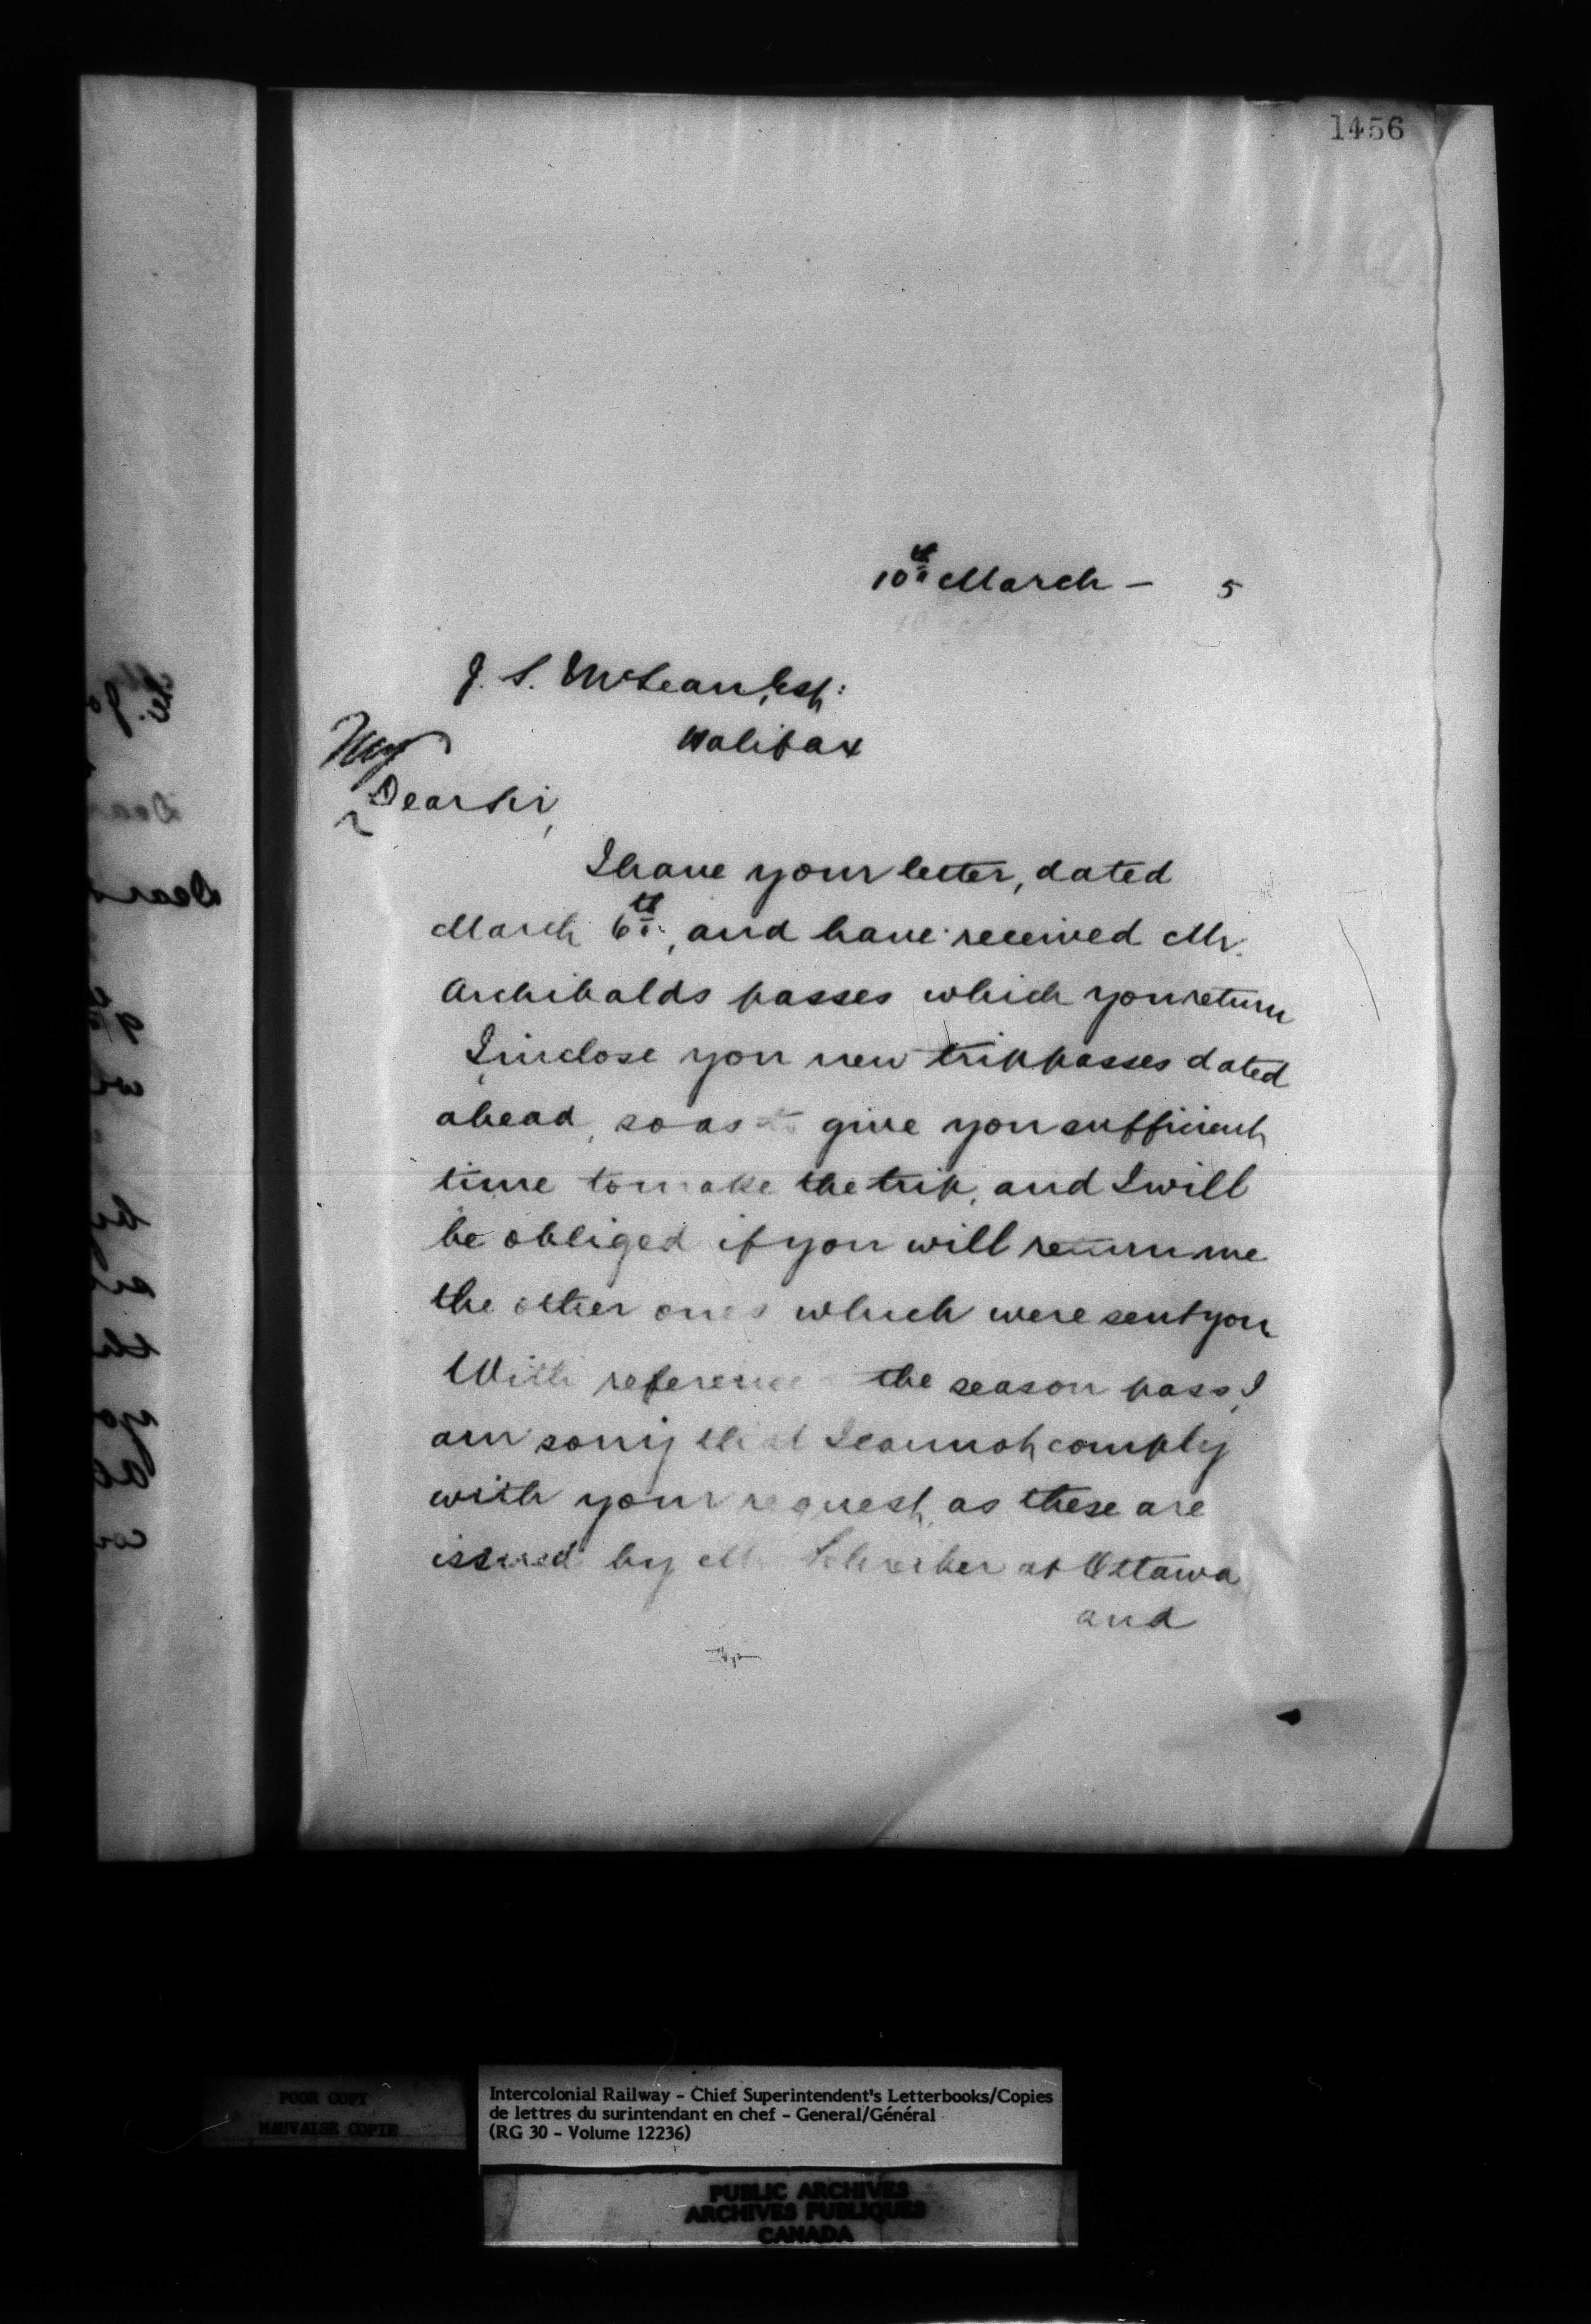 1456
10th March - 5
J. S. McLean, Esq:
Halifax
My
Dear Sir,
I have your letter, dated
March 6th, and have received Mr.
Archibalds passes which you return
I inclose you new trip passes dated
ahead, so as to give you sufficient
time to make the trip, and I will
be obliged if you will return me
the other ones which were sent you
With reference the season pass, I
am sorry that I cannot comply
with your request, as these are
issued by Mr Schreiber at Ottawa
and
POOR COPY
MAUVAISE COPIE
Intercolonial Railway - Chief Superintendent's Letterbooks/Copies
de lettres du surintendant en chef - General/Général
(RG 30 - Volume 12236)
PUBLIC ARCHIVES
ARCHIVES PUBLIQUES
CANADA